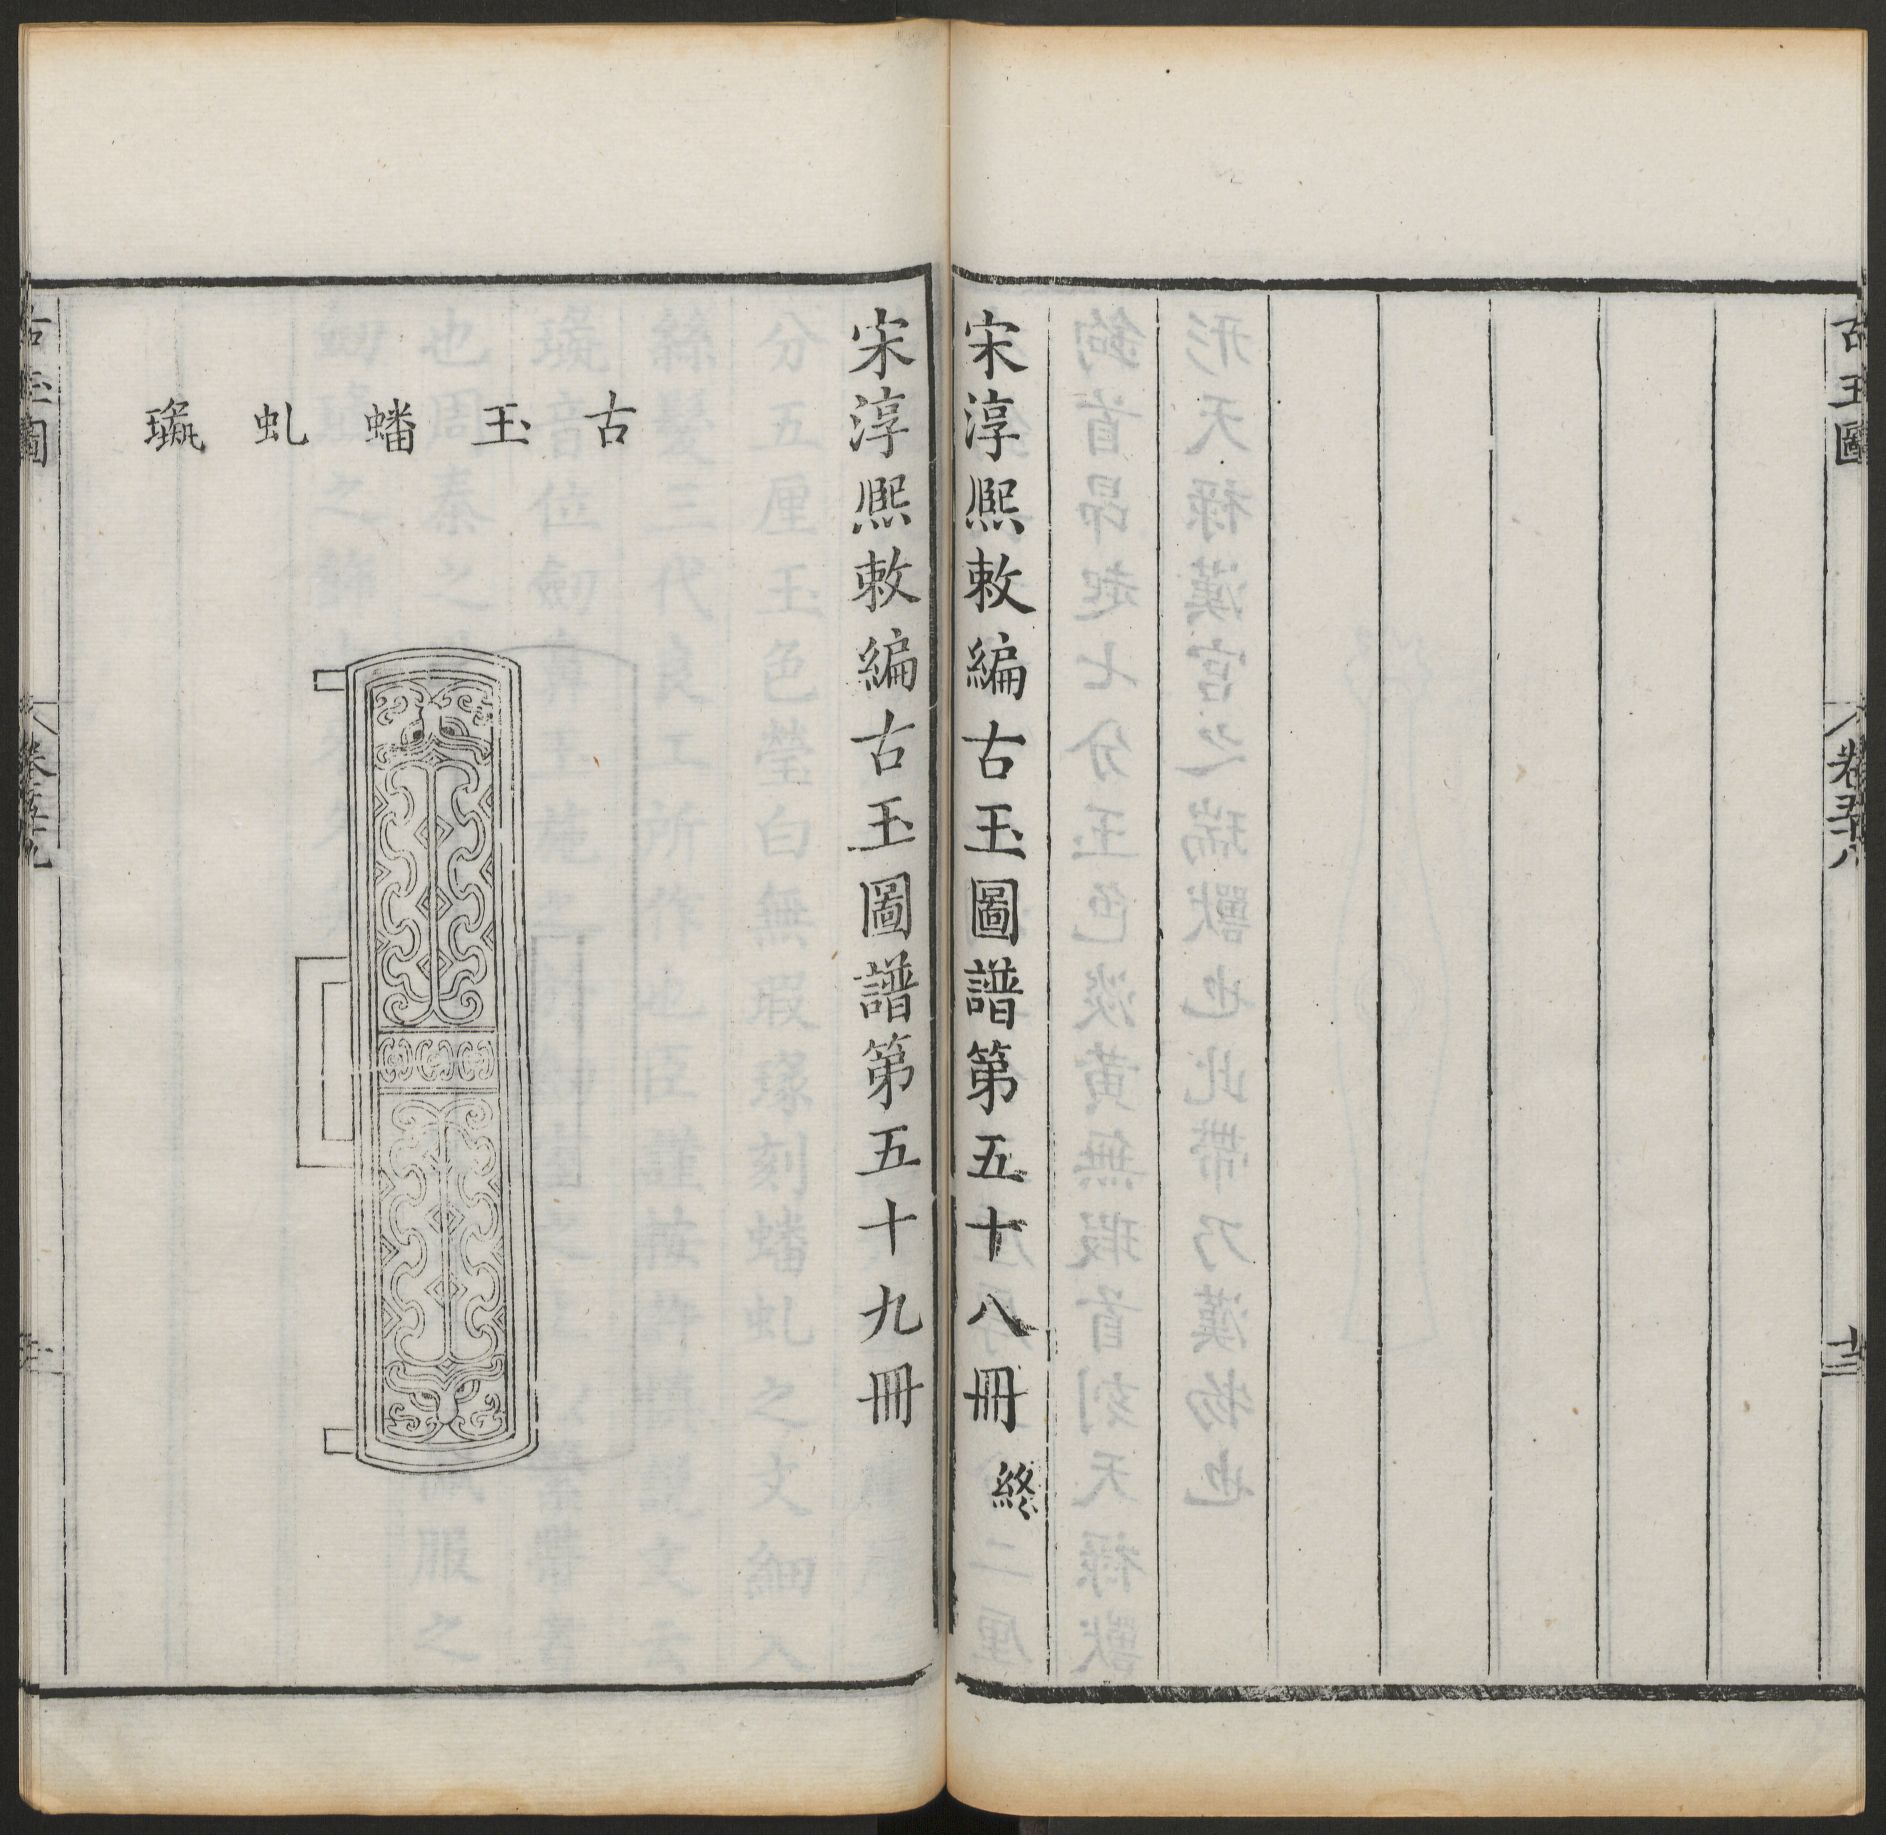 古玉圖
卷五十八
宋淳熙敕編古玉圖譜第五十八冊 終
宋淳熙敕編古玉圖譜第五十九冊
古玉蟠虬璏
古玉圖
卷五十九